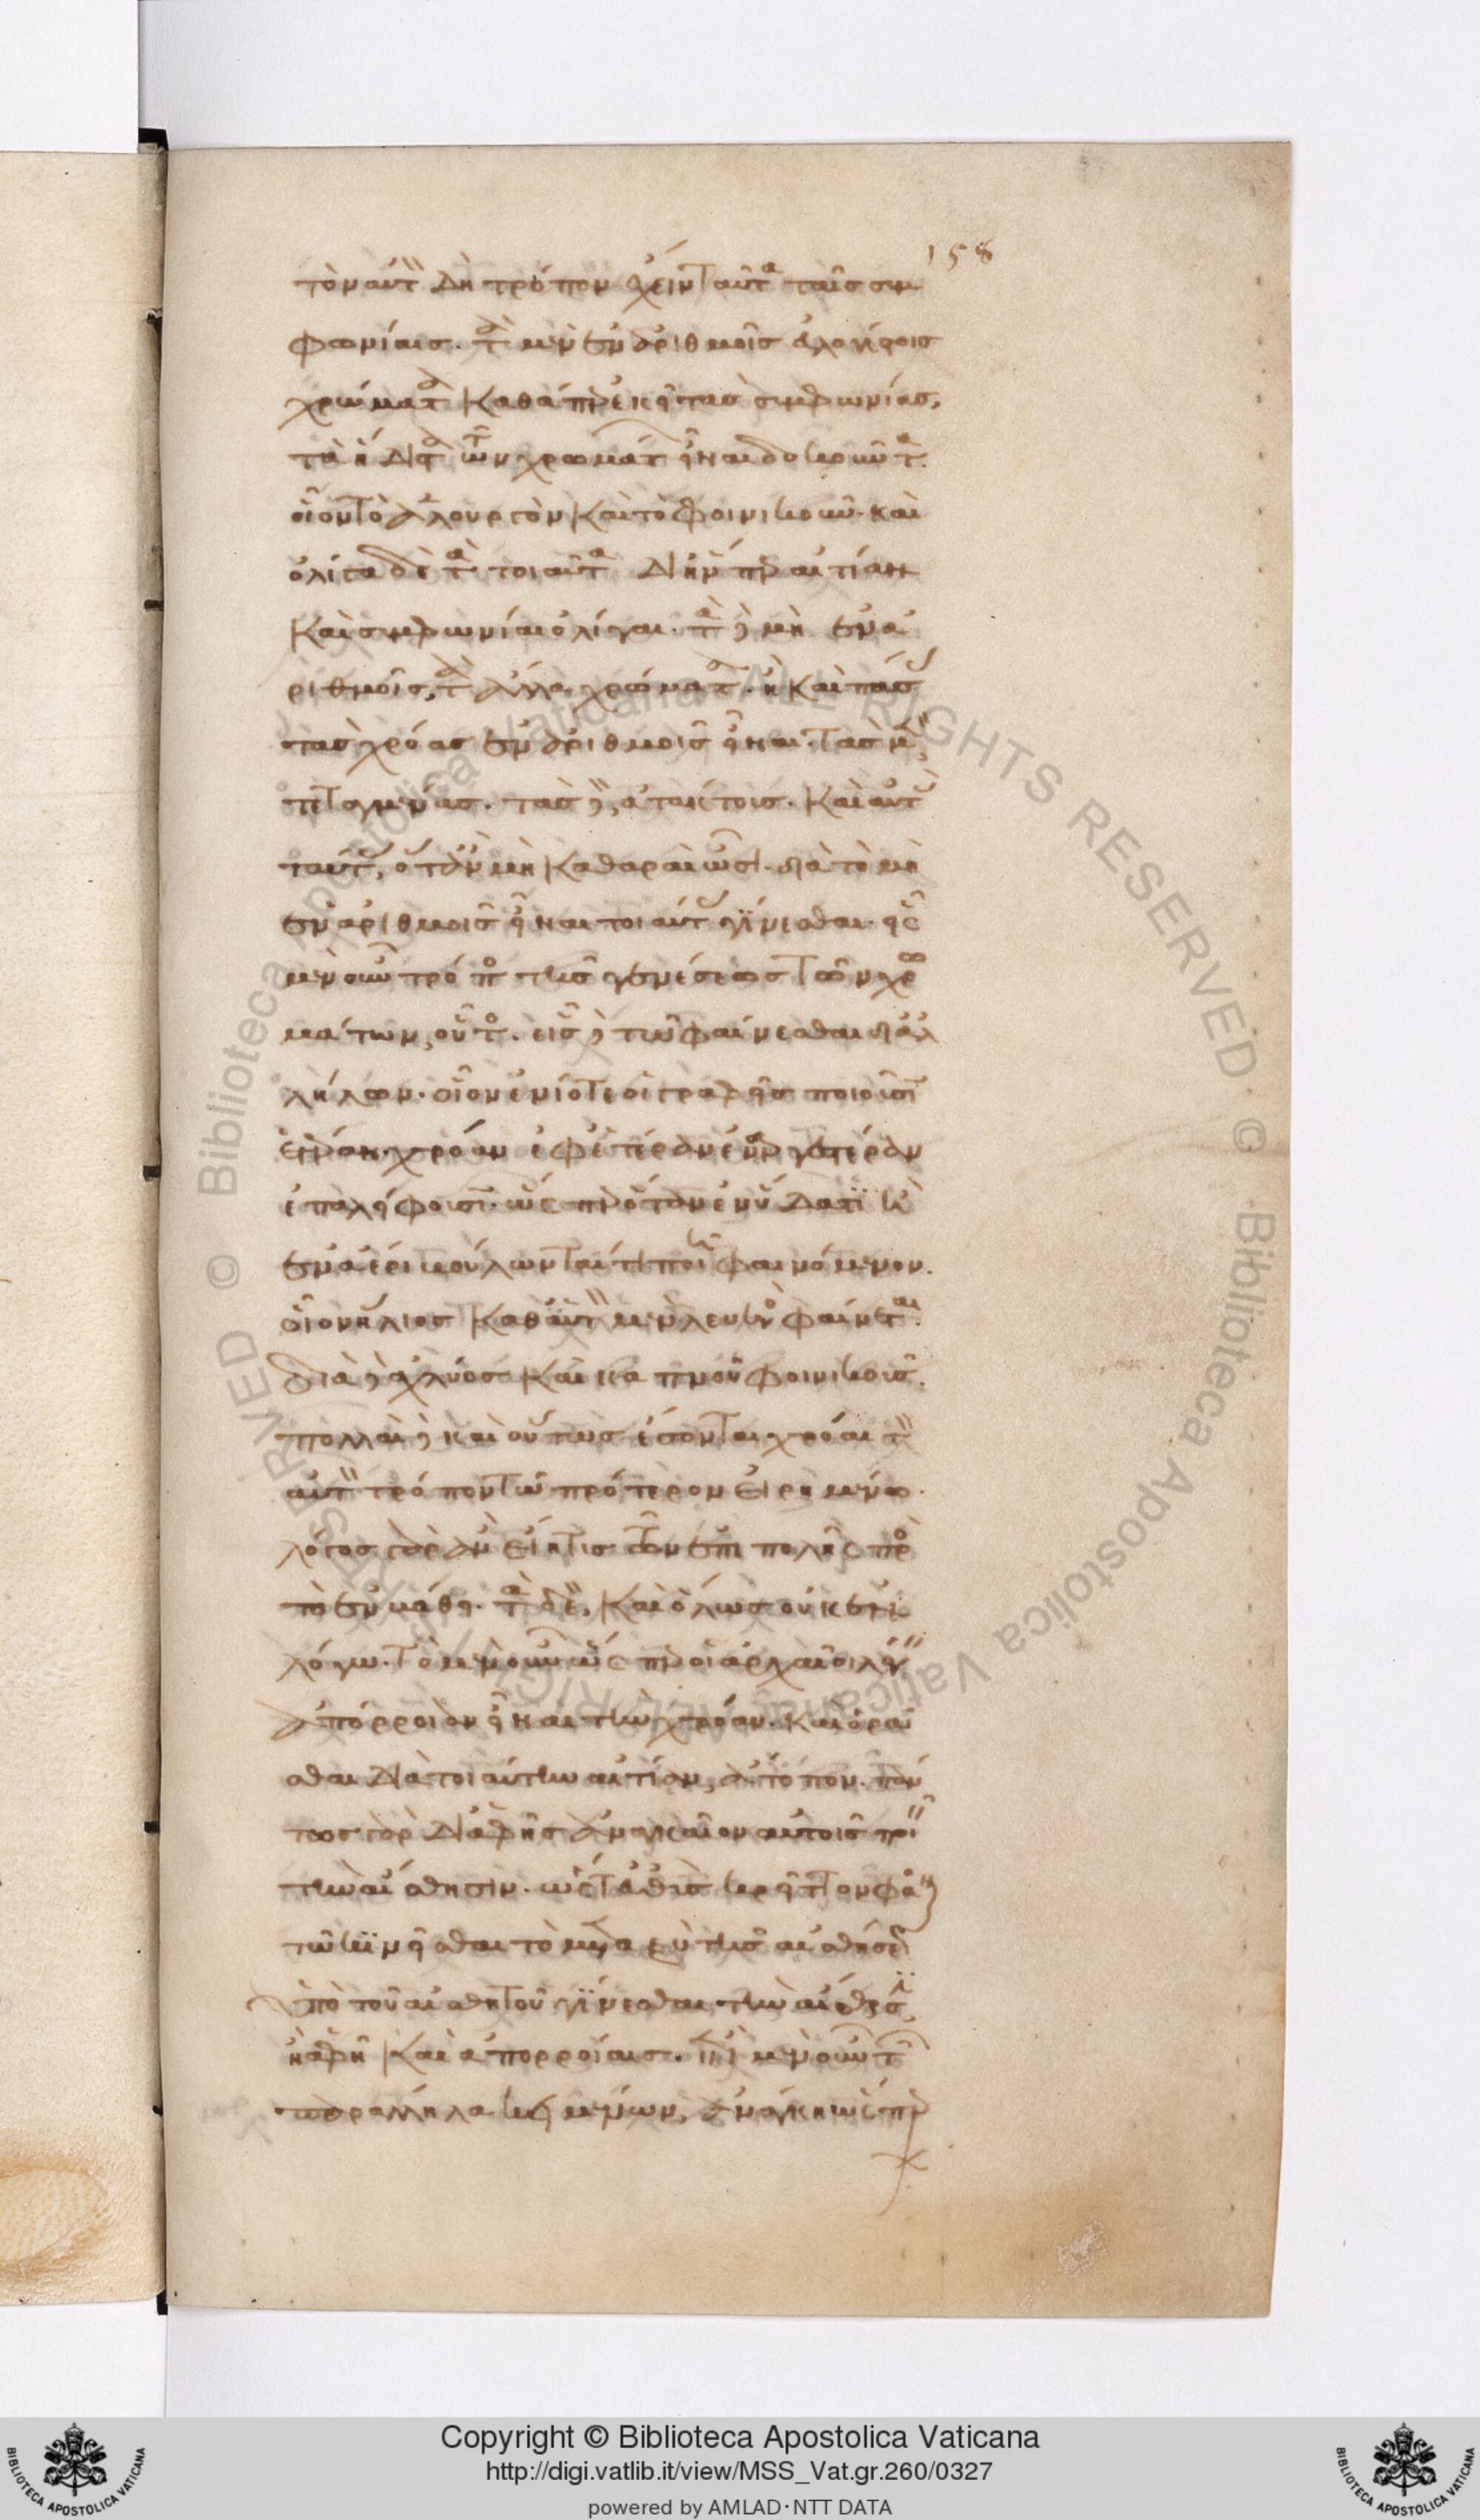 158
τὸν αὐτὸν δὴ τρόπον ἔχειν ταῦτα ταῖς συμ
φωνίαις. τὰ μὲν ἐν ἀριθμοῖς εὐλογίστοις
χρώματα καθάπερ ἐκεῖ τὰς συμφωνίας,
τὰ ἥδιστα τῶν χρωμάτων εἶναι δοκοῦντα.
οἷον τὸ ἁλουργὸν καὶ τὸ φοινικοῦν. καὶ
ὀλίγα δὲ τὰ τοιαῦτα δι' ἥνπερ αἰτίαν
καὶ συμφωνίαι ὀλίγαι. τὰ δὲ μὴ ἐν ἀ
ριθμοῖς, τὰ ἄλλα χρώματα. ἢ καὶ πάσας
τὰς χρόας ἐν ἀριθμοῖς εἶναι. τὰς μὲν
τεταγμένας. τὰς δὲ, ἀτάκτοις. καὶ αὐτὰς
ταύτας, ὅταν μὴ καθαραὶ ὦσι. διὰ τὸ μὴ
ἐν ἀριθμοῖς εἶναι τοιαύτας γίνεσθαι. εἷς
μὲν οὖν τρόπος τῆς γενέσεως τῶν χρω
μάτων, οὗτος. εἷς δὲ τὸ φαίνεσθαι δι' ἀλ
λήλων. οἷον ἐνίοτε οἱ γραφεῖς ποιοῦσιν
ἑτέραν χρόαν ἐφ' ἑτέραν ἐναργεστέραν
ἐπαλείφουσιν. ὥσπερ ὅταν ἐν ὕδατί τι καὶ
ἐν ἀέρι βούλωνται τι ποιῆσαι φαινόμενον.
οἷον ἥλιος καθ' αὑτὸν μὲν λευκὸς φαίνεται.
διὰ δὲ ἀχλύος καὶ καπνοῦ φοινικοῦς.
πολλαὶ δὲ καὶ οὕτως ἔσονται χρόαι τὸν
αὐτὸν τρόπον τῷ πρότερον εἰρημένῳ.
λόγος γὰρ ἂν εἴη τις τῶν ἐπιπολῆς πρὸς
τὸ ἐν βάθει. τὰ δὲ, καὶ ὅλως οὐκ ἐν
λόγῳ. τὸ μὲν οὖν ὥσπερ οἱ ἀρχαῖοι λέγειν
ἀπόρροιαν εἶναι τὴν χρόαν. καὶ ὁρᾶ
σθαι διὰ τοιαύτην αἰτίαν, ἄτοπον. πάν
τως γὰρ δι' ἁφῆς ἀναγκαῖον αὐτοῖς ποιεῖν
τὴν αἴσθησιν. ὥστ' εὐθὺς κρεῖττον φάναι
τῷ κινεῖσθαι τὸ μεταξὺ τῆς αἰσθήσεως
ὑπὸ τοῦ αἰσθητοῦ γίνεσθαι τὴν αἴσθησιν,
ἢ ἁφῇ καὶ ἀπορροίαις. ἐπὶ μὲν οὖν τῶν
παράλληλα κειμένων, ἀνάγκη ὥσπερ
Copyright © Biblioteca Apostolica Vaticana
http://digi.vatlib.it/view/MSS_Vat.gr.260/0327
powered by AMLAD·NTT DATA